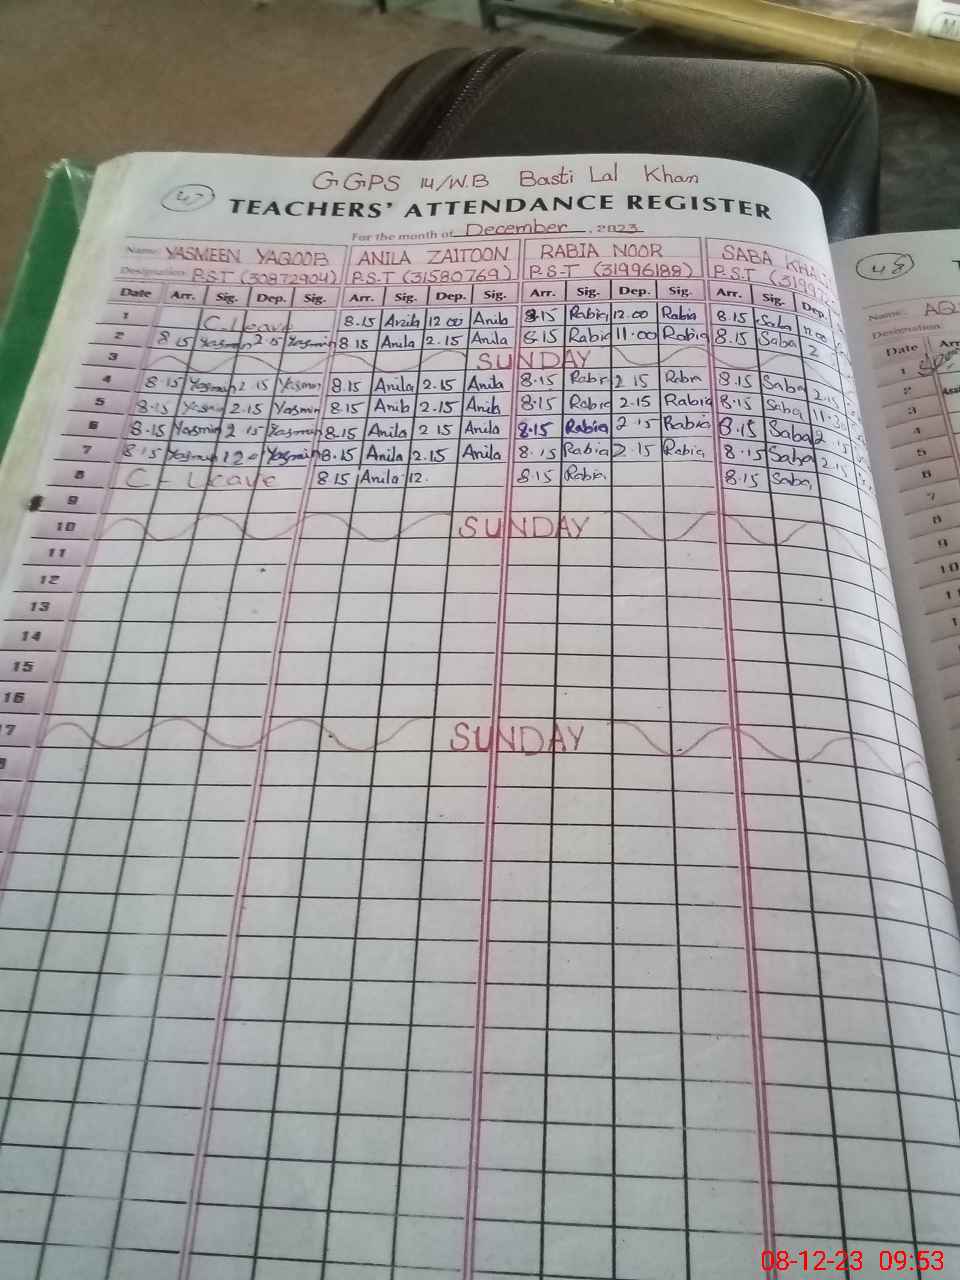 GGPS 14/W.B Basti Lal Khan
47
TEACHERS' ATTENDANCE REGISTER
For the month of December, 2023
Name: YASMEEN YAQOOB ANILA ZAITOON RABIA NOOR SABA KHA
Designation: P.S.T (30872904) P.S.T (31580769) P.S.T (31996188) P.S.T
Date Arr. Sig. Dep. Sig. Arr. Sig. Dep. Sig. Arr. Sig. Dep. Sig. Arr. Sig. Dep.
1 C-Leave 8.15 Anila 12.00 Anila 8.15 Rabia 12.00 Rabia 8.15 Saba 12.00
2 8.15 Yasmin 2.15 Yasmin 8.15 Anila 2.15 Anila 8.15 Rabia 11.00 Rabia 8.15 Saba 2
3 SUNDAY
4 8.15 Yasmin 2.15 Yasmin 8.15 Anila 2.15 Anila 8.15 Rabia 2.15 Rabia 8.15 Saba 2.15
5 8.15 Yasmin 2.15 Yasmin 8.15 Anila 2.15 Anila 8.15 Rabia 2.15 Rabia 8.15 Saba 11.30
6 8.15 Yasmin 2.15 Yasmin 8.15 Anila 2.15 Anila 8.15 Rabia 2.15 Rabia 8.15 Saba 2.15
7 8.15 Yasmin Yasmin 8.15 Anila 2.15 Anila 8.15 Rabia 2.15 Rabia 8.15 Saba 2.15
8 C-Leave 8.15 Anila 12. 8.15 Rabia 8.15 Saba
9
10 SUNDAY
11
12
13
14
15
16
7 SUNDAY
48
Name: AQ
Designation
Date Arr
1
2
3
4
5
6
7
8
9
10
08-12-23 09:53